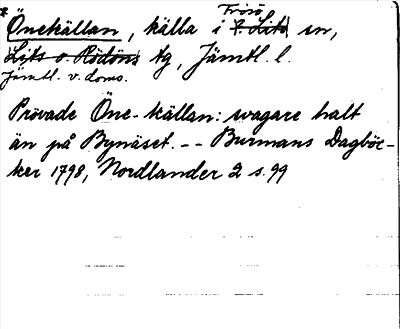 Frösö
* Önekällan, källa i f. Lits sn,
Lits o. Rödöns tg, Jämtl. l.
Jämtl. v. doms.
Prövade Öne-källan: svagare halt
än på Bynäset. -- Burmans Dagböc-
ker 1798, Nordlander 2 s. 99